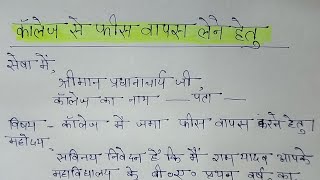 कॉलेज से फीस वापस लेने हेतु
सेवा में,
श्रीमान प्रधानाचार्य जी
कॉलेज का नाम --- पता ---
विषय - कॉलेज में जमा फीस वापस करने हेतु।
महोदय
सविनय निवेदन है कि मैं राम यादव आपके
महाविद्यालय के बी०ए० प्रथम वर्ष का